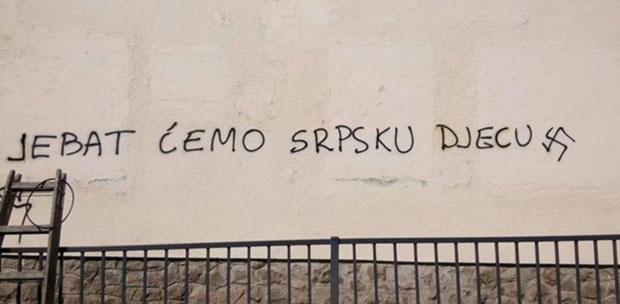 JEBAT ĆEMO SRPSKU DJECU 卐